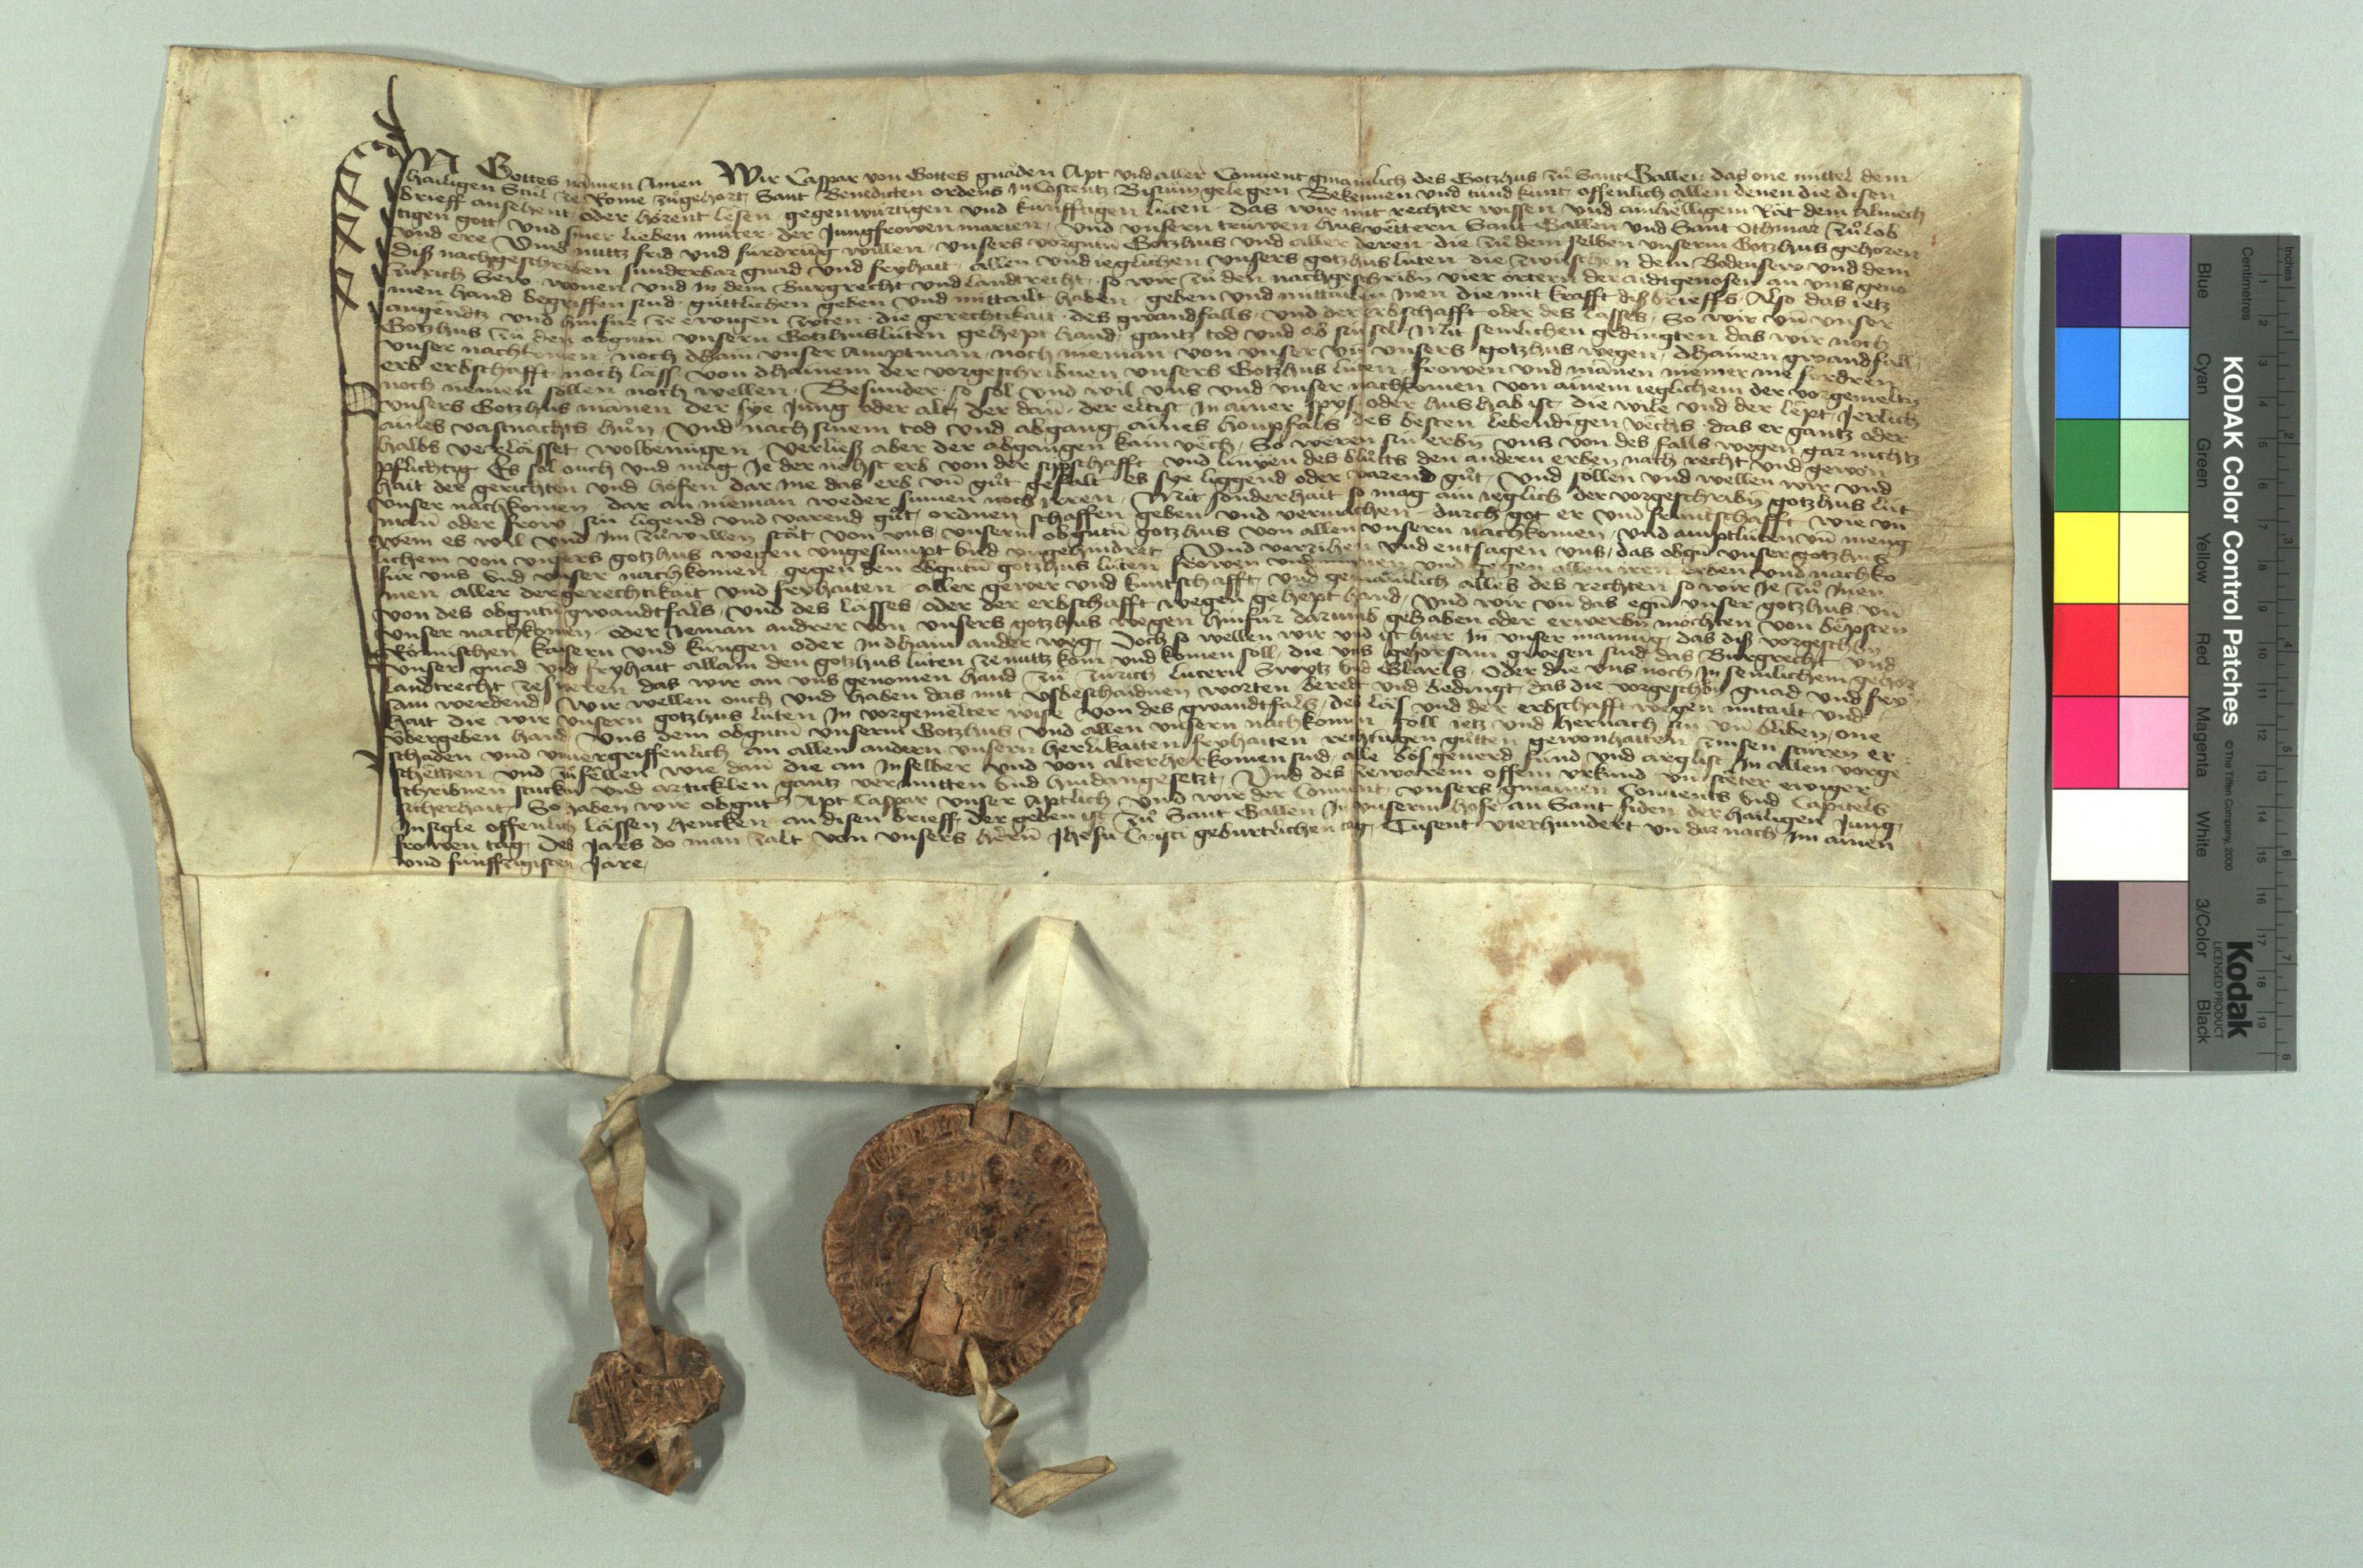 IN Gottes namen Amen Wir Caspar von Gottes gnaden Apt vnd aller Conuent gmainlich des Gotzhus zů Sant Gallen das one mittel dem
hailigen Stůl ze Rome zůgehort, Sant Benedicten ordens in Costentz Bistum gelegen Bekennen vnd tund kunt offenlich allen denen die disen
brieff ansehent oder hörent lesen gegenwürtigen vnd künfftigen lüten das wir mit rechter wissen vnd ainhelligem Rät dem almech
tigen gott vnd siner lieben můter der Jungfrowen marien, vnd vnsern trüwen husvättern Sant Gallen vnd Sant Othmar zů lob
vnd ere Vmb nuttz frid vnd fürdrung willen vnsers vorgntn Gotzhus vnd aller deren die zů dem selben vnserm Gotzhus gehören
diß nachgeschriben sunderbar gnad vnd fryhait allen vnd ieglichen vnsers gotzhus lüten die zwüschen dem Bodensew vnd dem
Zürich Sew wonen vnd in dem Burgrecht vnd landtrecht so wir zů den nachgeschribn vier örtern der aidtgenosen an vns geno
men hand begriffen sind güttlichen geben vnd mittailt haben geben vnd mittailen inen die mit krafft diß brieffs Also das ietz
angendtz vnd hinfür ze ewigen zyten die gerechtikait des gwandfalls vnd der erbschafft oder des lasses So wir vn vnser
Gotzhus zů den obgntn vnsern Gotzhuslüten gehept hand gantz tod vnd ab sin sol Mit semlichen gedingten das wir noch
vnser nachkomen noch dhain vnser Amptman noch nieman von vnser vn vnsers gotzhus wegen dhainen gwandfall
erb erbschafft noch läss von dhainem der vorgeschribnen vnsers Gotzhus lüten frowen vnd mannen niemer me fordren
noch nemen sollen noch wellen Besunder so sol vnd wil vns vnd vnser nachkomen von ainem ieglichem der vorgemeltn
vnsers Gotzhus mannen der sye Jung oder alt der dan der eltist in ainer spys oder hushab ist die wile vnd der lept Jerlich
aines vastnachts hůn vnd nach sinem tod vnd abgang aines houpfals des besten lebendigen vechs das er gantz oder
halbs verlässet wolbenügen Verließ aber der abgangen kain vech So weren sin erbn vns von des falls wegen gar nichtz
pflichtig Es sol ouch vnd mag ie der nehst erb von der sypschafft vnd linyen des blůtts den andern erben nach recht vnd gewon
hait der gerichten vnd höfen dar jne das erb vn gůt gefalt es sye liggend oder varend gůt vnd söllen vnd wellen wir vnd
vnser nachkomen dar an nieman weder sumen noch irren Mit sonderhait so mag ain ieglich der vorgeschribn gotzhus lüt
man oder frow sin ligend vnd varend gůt ordnen schaffen geben vnd vermachen durch got er vnd früntschafft wie vn
wem es wil vnd im zůwillen stät von vns vnserm obgntn gotzhus von allen vnsern nachkomen vnd amptlüten vn meng
lichem von vnsers gotzhus wegen vngesumpt vnd vngehindret Vnd verzihen vnd entsagen vns, das obgn vnser gotzhus
für vns vnd vnser nachkomen gegen den obgntn gotzhus lüten frowen vnd mannen vnd gegen allen iren erben vnd nachko
men aller der gerechtikait vnd fryhaiten aller gewer vnd kuntschafft vnd gemainlich alles des rechten so wir ie zů inen
von des obgntn gwandtfals vnd des lässes oder der erbschafft wegen gehept hand vnd wir vn das egn vnser gotzhus vn
vnser nachkomen oder ieman andrer von vnsers gotzhus wegen hinfür darumb gehaben oder erwerbn möchten von bäpsten
Römischen kaisern vnd küngen oder in dhain ander weg Doch so wellen wir vnd ist hier in vnser mainug das diß vorgeschbn
vnser gnad vnd fryhait allain den gotzhus lüten ze nuttz kom vnd komen soll die vns gehorsam gwesen sind das Burgrecht vnd
landtrecht zeswerren das wir an vns genomen hand zů Zürich Lucern Swytz vnd Glaris Oder die vns noch in semlichem gehor
sam werdend Wir wellen ouch vnd haben das mit vsbeschaidnen worten beredt vnd bedingt das die vorgeschbn gnad vnd fry
hait die wir vnsern gotzhus lüten in vorgemelter wise von des gwandtfals des läs vnd der erbschafft wegen mitailt vnd
übergeben hand vns dem obgntn vnserm Gotzhus vnd allen vnsern nachkomn söll ietz vnd hernach sin vn bliben one
schaden vnd vnuergriffenlich an allen andern vnsern herlikaiten fryhaiten rechtugen gůtten gewonhaiten zinsen stüren er
schetzen vnd zůfellen wie dan die an inselber vnd von alterherkomen sind alle bös geuerd fünd vnd arglist in allen vorge
schribnen stuckn vnd artickeln gantz vermitten vnd hindangesetzt Vnd des zewarem offem vrkund vn stäter ewiger
sicherhait So haben wir obgnt Apt Caspar vnser Aptlich vnd wir der Conuent vnsers gmainen Conuents vnd Capitels
Insigle offenlich lässen hencken an disen brieff der geben ist zů Sant Gallen in vnserm hofe an Sant fiden der hailigen Jung
frowen tag Des Jars do man zalt von vnsers hern Jhesu Cristi geburtlichen tag Tusent vierhundert vn dar nach im ainen
vnd fünffzigisten Jare
KODAK Color Control Patches
© The Tiffen Company, 2000
Kodak
LICENSED PRODUCT
Blue Cyan Green Yellow Red Magenta White 3/Color Black
Centimetres
Inches
1 2 3 4 5 6 7 8 9 10 11 12 13 14 15 16 17 18 19
1 2 3 4 5 6 7 8